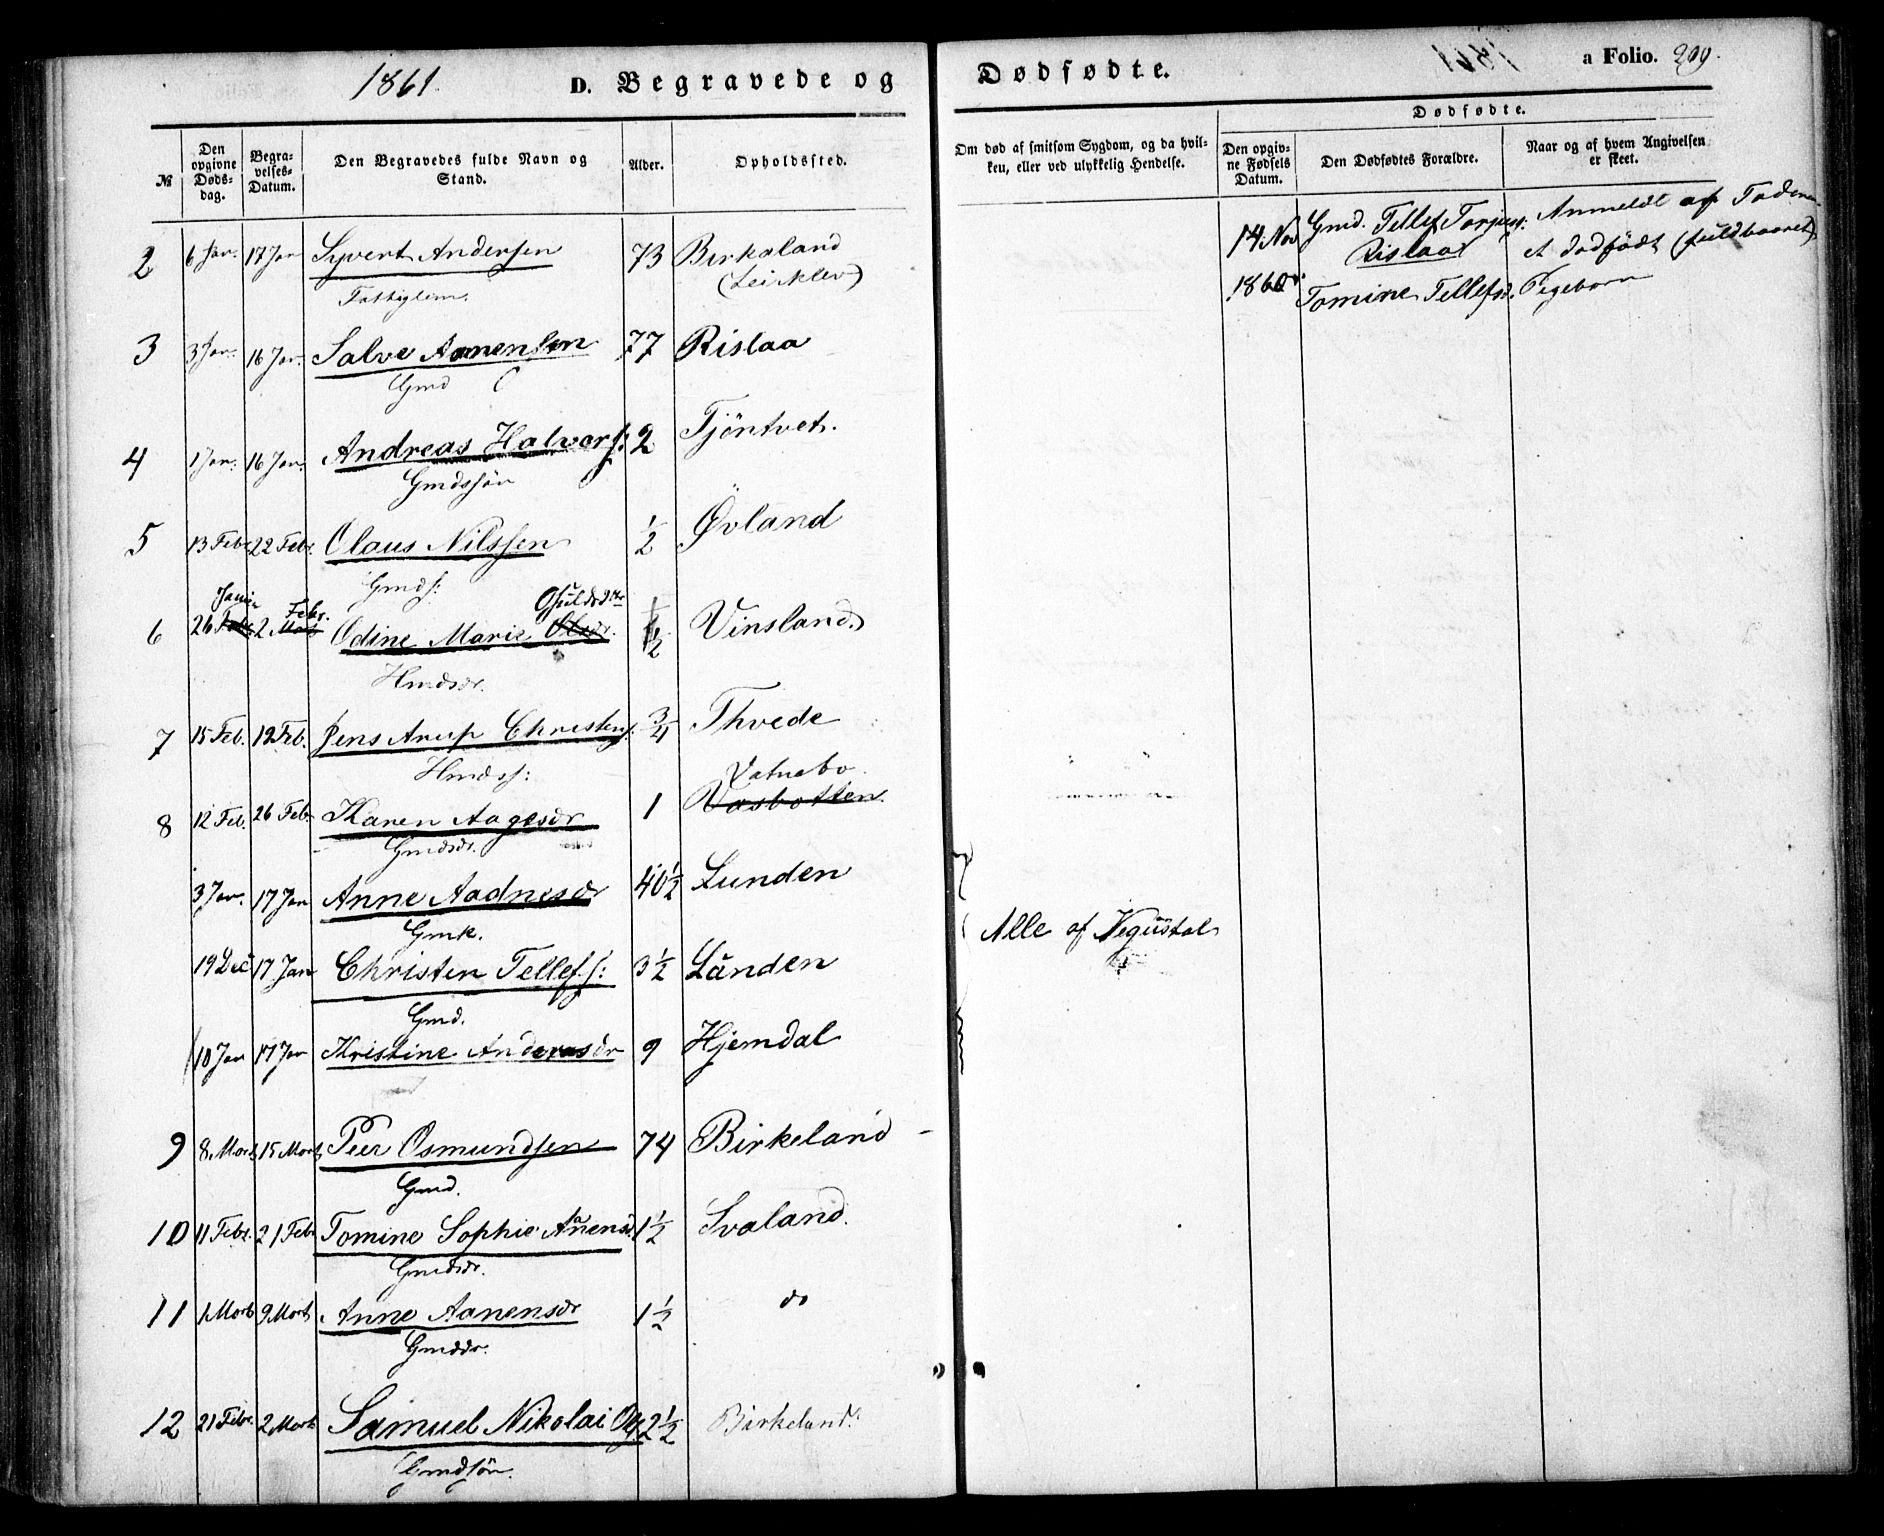 1861.
D. Begravede og Dødfødte.
a Folio. 209.
№
Den opgivne Dødsdag.
Begravelses-Datum.
Den Begravedes fulde Navn og Stand.
Alder.
Opholdssted.
Om død af smitsom Sygdom, og da hvilken, eller ved ulykkelig Hendelse.
Dødfødte.
Den opgivne Fødsels Datum.
Den Dødfødtes Forældre.
Naar og af hvem Angivelsen er skeet.
2 6 Jan. 17 Jan Syvert Andersen 73 Birkeland
Fattiglem. (Leirklev)
3 3 Jan. 16 Jan. Salve Aanensen 77 Rislaa
Gmd
4 1 Jan. 16 Jan. Andreas Halvors: 2 Tjöntvet.
Gmdssön
5 13 Febr 22 Febr. Olaus Nilssen 1/2 Øvland
Gmds:
Febr. Osuldsdtr
6 26 Febr 2 Mart Odine Marie Olsdr. 1/2 Vinsland
Hmdsdr.
7 15 Feb. 19 Feb. Jens Arup Christens: 3/4 Thvede
Hmdss: Vatnebo
8 12 Feb. 26 Feb Karen Aagesdr 1 Vasbotten.
Gmdsdr.
3 Jan. 17 Jan Anne Aadnesdr 40 1/2 Lunden
Gmk.
19 Dec 17 Jan Christen Tellefs: 3 1/2 Lunden
Gmd.
10 Jan 17 Jan Kristine Andreasdr 9 Hjemdal
Alle af Vegusdal
9 8 Mart 15 Mart Peer Osmundsen 74 Birkeland
Gmd.
10 11 Febr. 21 Febr Tomine Sophie Aanensd. 1 1/2 Svaland.
Gmdsdr.
11 1 Mart 9 Mart Anne Aanensdr 1 1/2 do
Gmdsdr.
12 21 Febr. 2 Mart Samuel Nikolai 2 1/2 Birkeland.
Gmdssön.
14 Nov Gmd. Tellef Torjuss: Anmeldt af Faderen
Rislaa et dødfødt (fuldbaaret)
1860 Tomine Tellefsd. Pigebarn